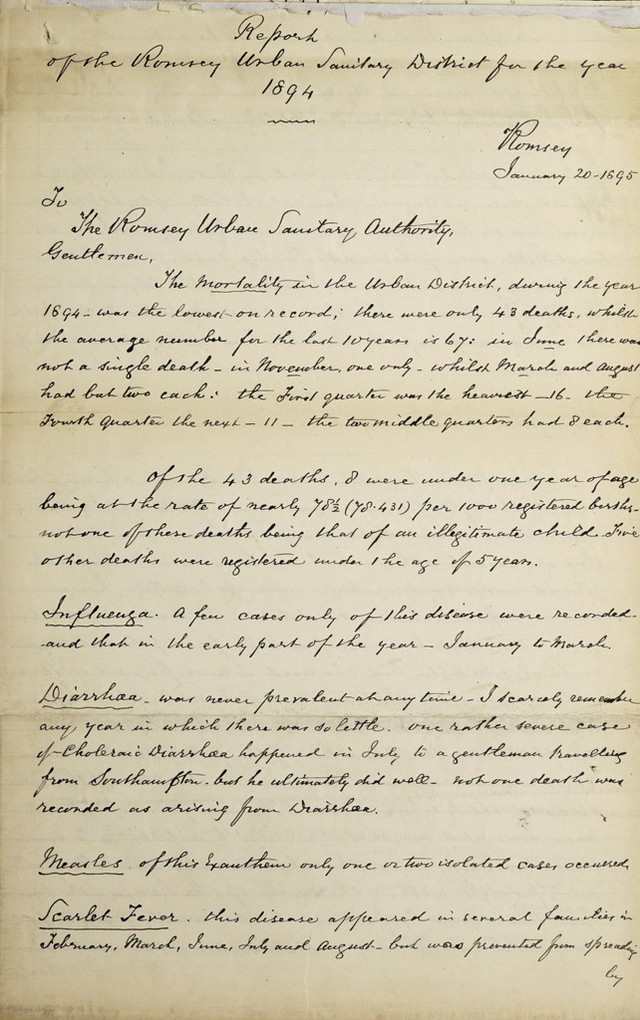 Report
of the Romsey Urban Sanitary District for the year
1894
Romsey
January 20-1895
To
The Romsey Urban Sanitary Authority,
Gentlemen,
The Mortality in the Urban District, during the year
1894- was the lowest on record; there were only 43 deaths, whilst
the average number for the last 10 years is 67: in June there was
not a single death - in November, one only - whilst March and August
had but two each: the First quarter was the heaviest - 16 - the
Fourth Quarter the next - 11 - the two middle quarters had 8 each.
Of the 43 deaths, 8 were under one year of age
being at the rate of nearly 78½ (78.431) per 1000 registered births-
not one of these deaths being that of an illegitimate child. Five
other deaths were registered under the age of 5 years.
Influenza. A few cases only of this disease were recorded-
and that in the early part of the year - January to March.
Diarrhœa - was never prevalent at any time - I scarcely remember
any year in which there was so little. one rather severe case
of Choleraic Diarrhœa happened in July to a gentleman travelling
from Southampton - but he ultimately did well - not one death was
recorded as arising from Diarrhœa.
Measles of this Exanthem only one or two isolated cases occurred.
Scarlet Fever. this disease appeared in several families in
February, March, June, July and August - but was prevented from spreading
by